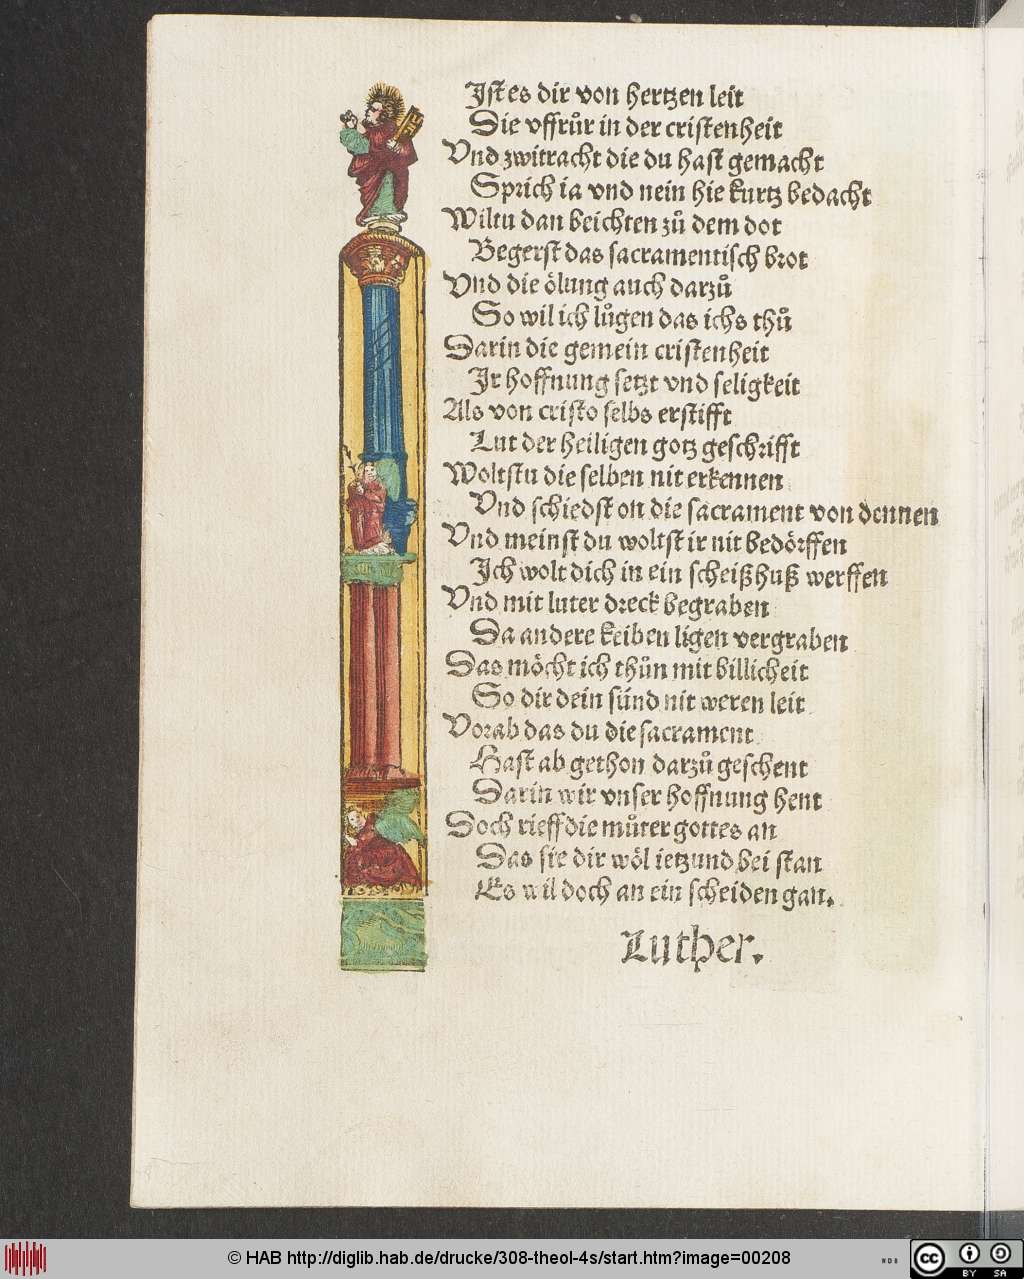 Ist es dir von hertzen leit
Die vffrůr in der cristenheit
Vnd zwitracht die du hast gemacht
Sprich ia vnd nein hie kurtz bedacht
Wiltu dan beichten zů dem dot
Begerst das sacramentisch brot
Vnd die ölung auch darzů
So wil ich lůgen das ichs thů
Darin die gemein cristenheit
Ir hoffnung setzt vnd seligkeit
Als von cristo selbs erstifft
Lut der heiligen gotz geschrifft
Woltstu die selben nit erkennen
Vnd schiedst on die sacrament von dennen
Vnd meinst du woltst ir nit bedörffen
Ich wolt dich in ein scheißhuß werffen
Vnd mit luter dreck begraben
Da andere keiben ligen vergraben
Das möcht ich thůn mit billicheit
So dir dein sünd nit weren leit
Vorab das du die sacrament
Hast ab gethon darzů geschent
Darin wir vnser hoffnung hent
Doch rieff die můter gottes an
Das sie dir wöl ietzund bei stan
Es wil doch an ein scheiden gan.
Luther.
© HAB http://diglib.hab.de/drucke/308-theol-4s/start.htm?image=00208
cc BY SA